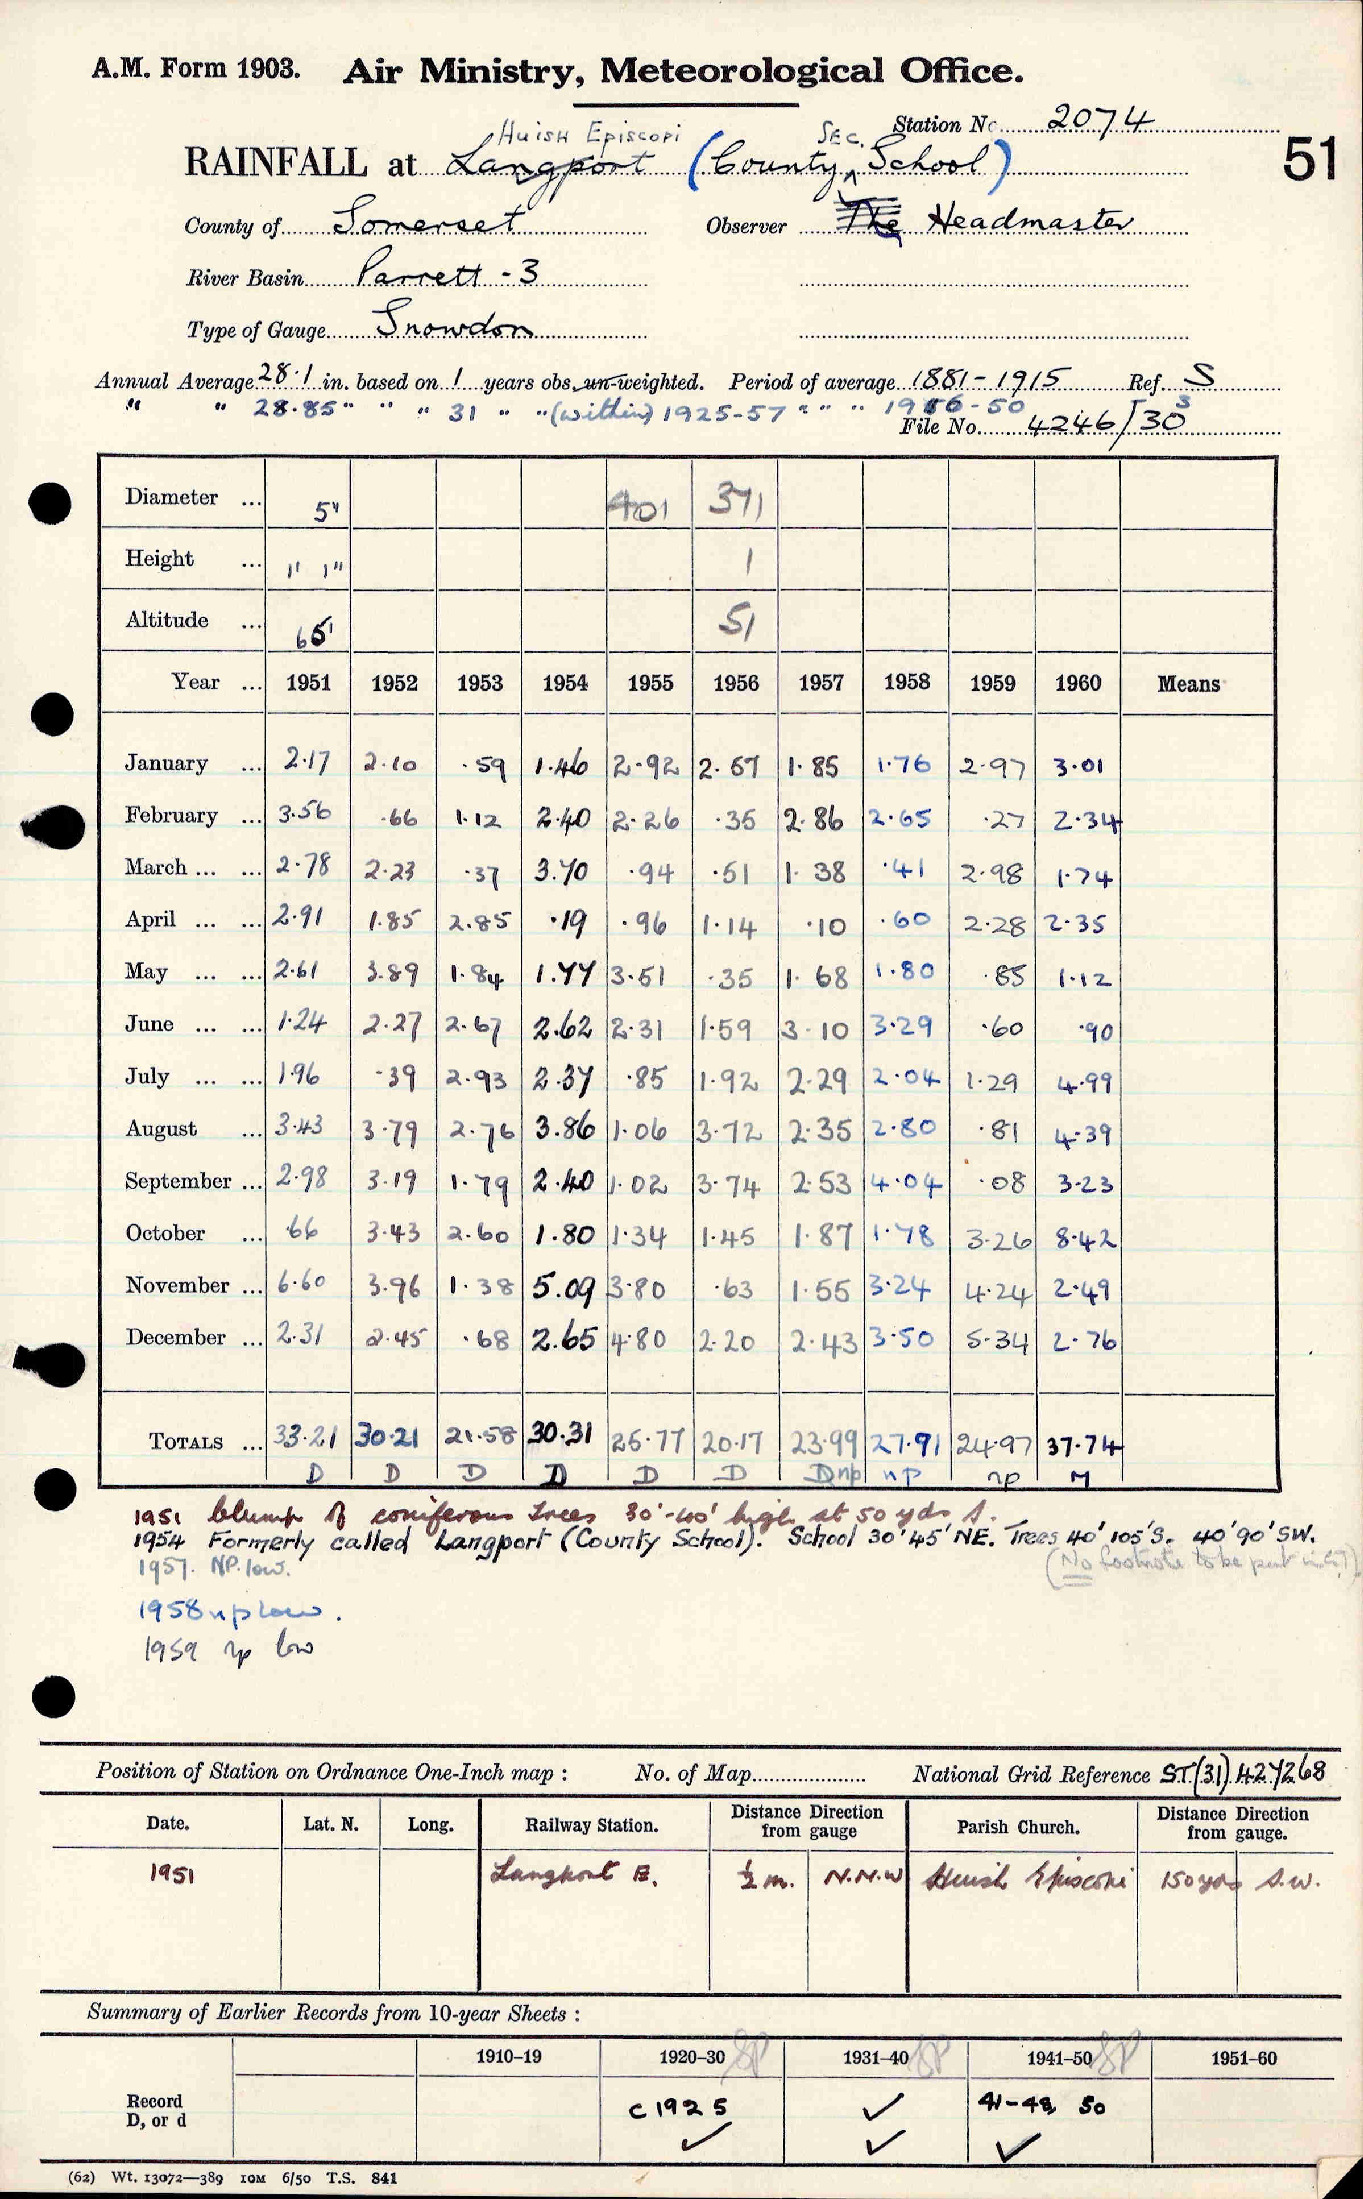 A.M. Form 1903. Air Ministry, Meteorological Office.
Station No. 2074
Huish Episcopi SEC.
RAINFALL at Langport (County School)
51
County of Somerset Observer The Headmaster
River Basin Parrett - 3
Type of Gauge Snowdon
Annual Average 28.1 in. based on 1 years obs. un-weighted. Period of average 1881-1915 Ref. S
" " 28.85 " " " 31 " " (within) 1925-57 " " " 1916-50
File No. 4246/30 3
Diameter ... 5" 401 371
Height ... 1' 1" 1
Altitude ... 65' 51
Year ... 1951 1952 1953 1954 1955 1956 1957 1958 1959 1960 Means
January ... 2.17 2.10 .59 1.46 2.92 2.57 1.85 1.76 2.97 3.01
February ... 3.56 .66 1.12 2.40 2.26 .35 2.86 2.65 .27 2.34
March ... ... 2.78 2.23 .37 3.70 .94 .51 1.38 .41 2.98 1.74
April ... ... 2.91 1.85 2.85 .19 .96 1.14 .10 .60 2.28 2.35
May ... ... 2.61 3.89 1.84 1.77 3.51 .35 1.68 1.80 .85 1.12
June ... ... 1.24 2.27 2.67 2.62 2.31 1.59 3.10 3.29 .60 .90
July ... ... 1.96 .39 2.93 2.37 .85 1.92 2.29 2.04 1.29 4.99
August ... 3.43 3.79 2.76 3.86 1.06 3.72 2.35 2.80 .81 4.39
September ... 2.98 3.19 1.79 2.40 1.02 3.74 2.53 4.04 .08 3.23
October ... .66 3.43 2.60 1.80 1.34 1.45 1.87 1.78 3.26 8.42
November ... 6.60 3.96 1.38 5.09 3.80 .63 1.55 3.24 4.24 2.49
December ... 2.31 2.45 .68 2.65 4.80 2.20 2.43 3.50 5.34 2.76
TOTALS ... 33.21 30.21 21.58 30.31 25.77 20.17 23.99 27.91 24.97 37.74
D D D D D D D np np np M
1951 Clump of coniferous trees 30'-40' high at 50 yds S.
1954 Formerly called Langport (County School). School 30' 45' NE. Trees 40' 105' S. 40' 90' SW.
(No footnote to be put in
1957. NP. low.
1958 np low.
1959 np low
Position of Station on Ordnance One-Inch map : No. of Map National Grid Reference ST (31) 427268
Date. Lat. N. Long. Railway Station. Distance Direction from gauge Parish Church. Distance Direction from gauge.
1951 Langport E. ½ m. N.N.W Huish Episcopi 150 yds S.W.
Summary of Earlier Records from 10-year Sheets :
1910–19 1920–30 SP 1931–40 SP 1941–50 SP 1951–60
Record D, or d c 1925 ✓ ✓ ✓ 41-48, 50 ✓
(62) Wt. 13072—389 10M 6/50 T.S. 841